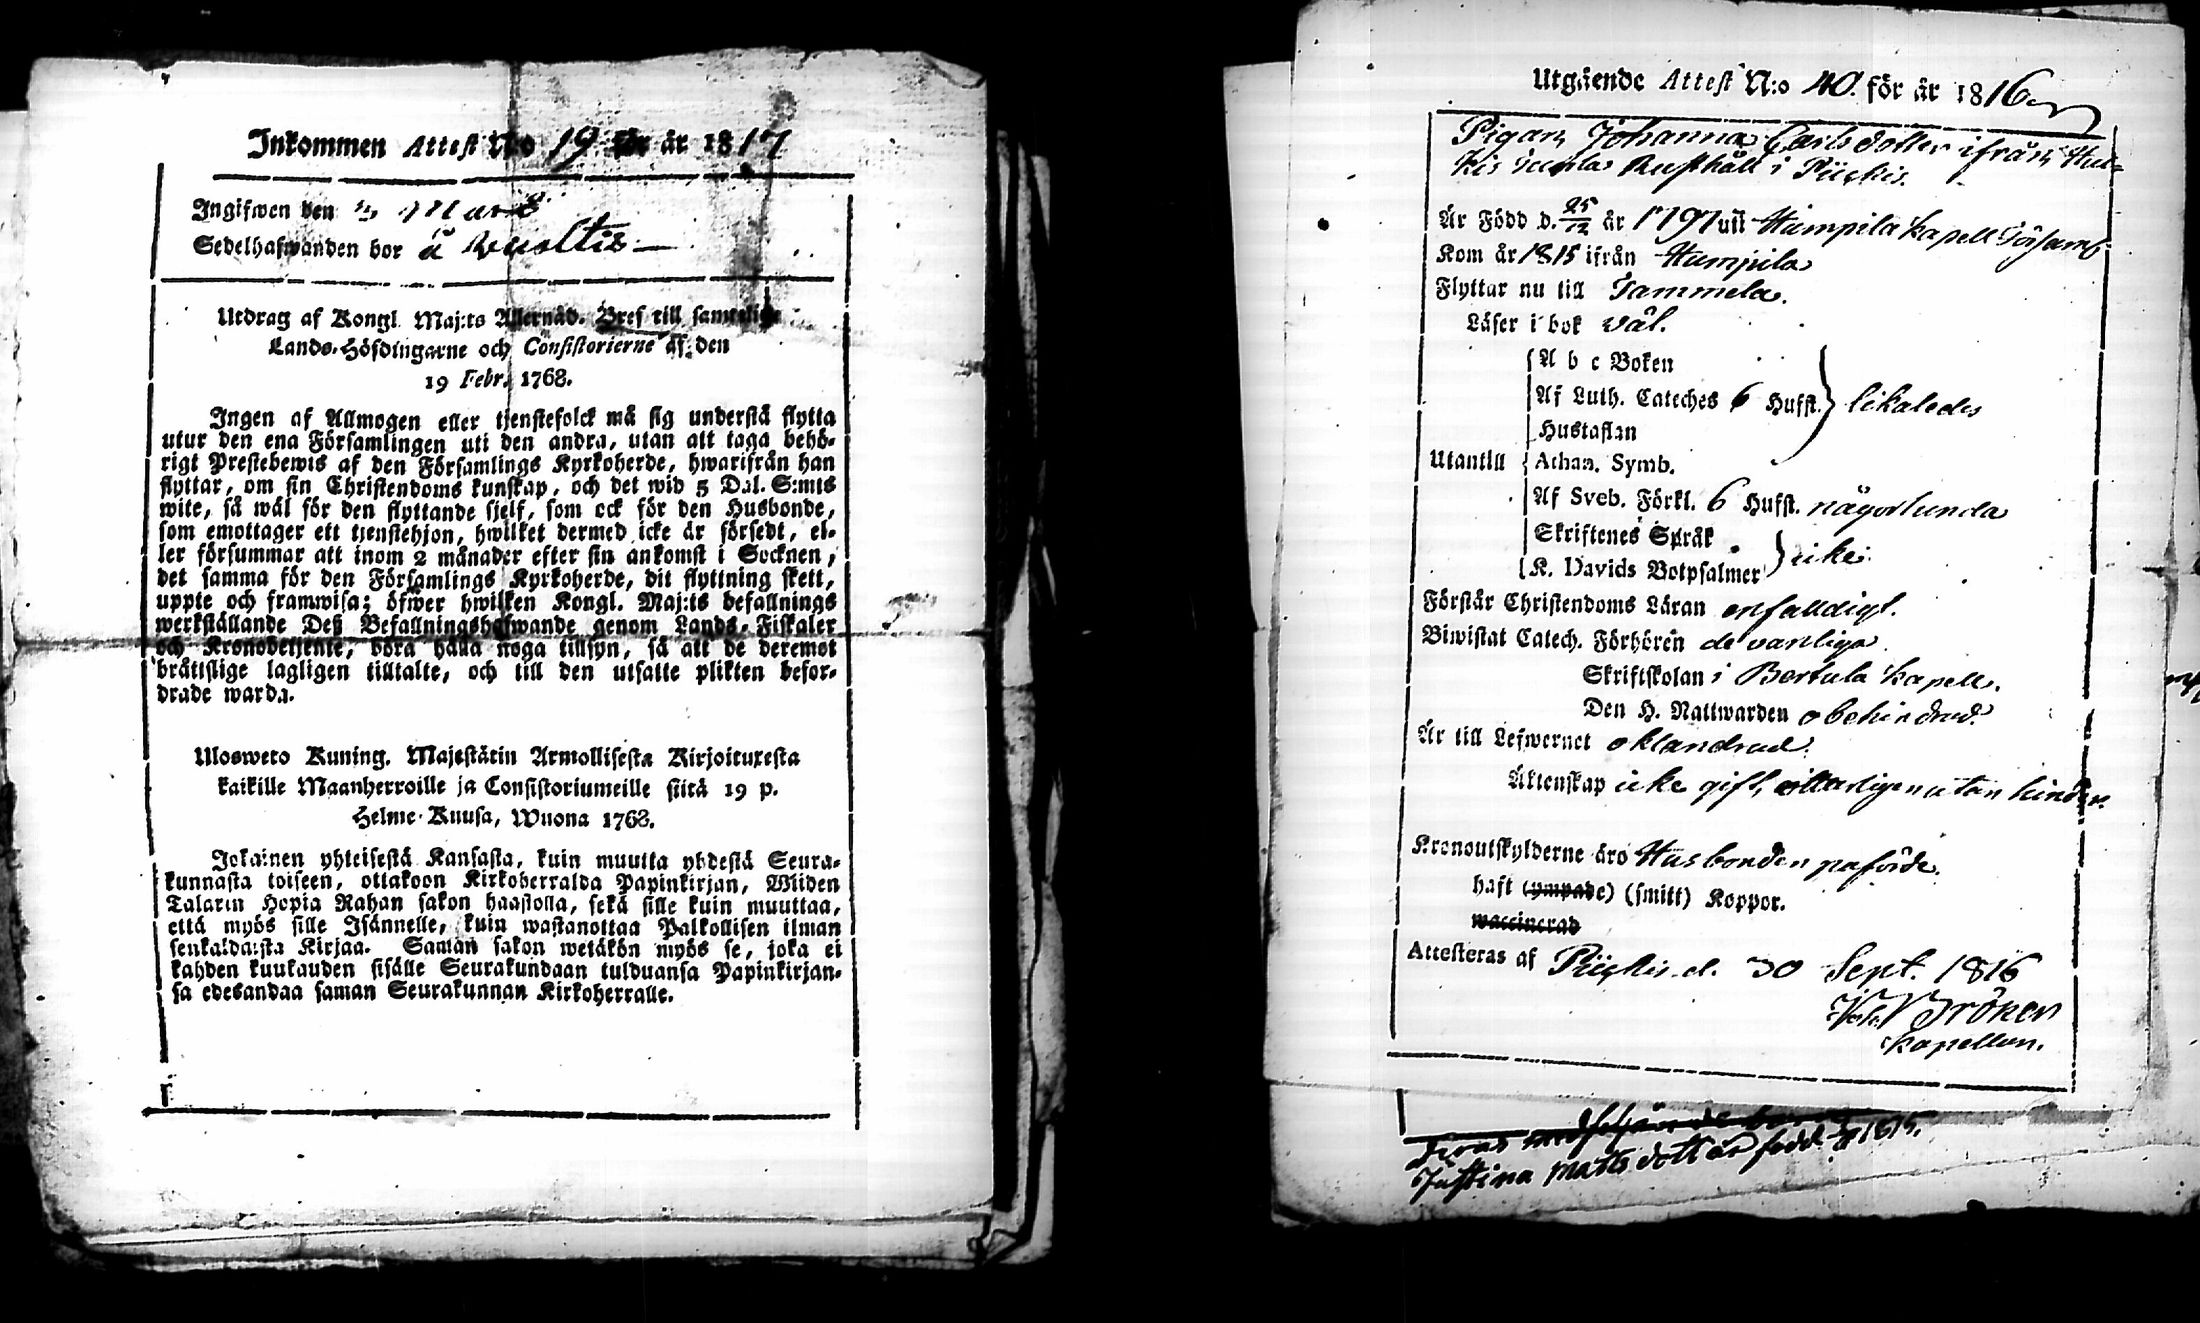 Inkommen Attest No 19 för år 1817
Ingifwen den Mars
Sedelhafwanden bor å
Utdrag af Kongl. Maj:ts Allernåd. Bref till samtelige
Lands-Höfdingarne och Consistorierne af den
19 Febr. 1768.
Ingen af Allmogen eller tjenstefolck må sig understå flytta
utur den ena Församlingen uti den andra, utan att taga behö-
rigt Prestebewis af den Församlings Kyrkoherde, hwarifrån han
flyttar, om sin Christendoms kunskap, och det wid 5 Dal. S:mts
wite, så wäl för den flyttande sjelf, som ock för den Husbonde,
som emottager ett tjenstehjon, hwilket dermed icke är försedt, el-
ler försummar att inom 2 månader efter sin ankomst i Socknen,
det samma för den Församlings Kyrkoherde, dit flyttning skett,
uppte och framwisa; öfwer hwilken Kongl. Maj:ts befallnings
werkställande Deß Befallningshafwande genom Lands-Fiskaler
och Kronobetjente, böra hålla noga tillsyn, så att de deremot
bråtislige lagligen tilltalte, och till den utsatte plikten befor-
drade warda.
Uloswero Kuning. Majestätin Armollisesta Kirjoituxesta
kaikille Maanherroille ja Consistoriumeille siitä 19 p.
Helme-Kuusa, Wuona 1768.
Jokainen yhteisestä Kansasta, kuin muutta yhdestä Seura-
kunnasta toiseen, ottakoon Kirkoherralda Papinkirjan, Wiiden
Talarin Hopia Rahan sakon haastolla, sekä sille kuin muuttaa,
että myös sille Isännelle, kuin wastanottaa Palkollisen ilman
senkaldaista Kirjaa. Saman sakon wetäkön myös se, joka ei
kahden kuukauden sisälle Seurakundaan tulduansa Papinkirjan-
sa edesandaa saman Seurakunnan Kirkoherralle.
Utgående Attest N:o 40. för år 1816
Pigan Johanna Carlsdotter ifrån
Rusthåll i Piickis.
Är Född d. 25/12 år 1797 uti Humpila kapell Församl.
Kom år 1815 ifrån Humpila
Flyttar nu till Tammela.
Läser i bok väl.
A b c Boken
Af Luth. Cateches 6 Hufst. likaledes
Hustaflan
Utantill Athan. Symb.
Af Sveb. Förkl. 6 Hufst. någorlunda
Skriftenes Språk
K. Davids Botpsalmer icke
Förstår Christendoms Läran enfaldigt.
Biwistat Catech. Förhören de vanliga
Skriftskolan i Bertula kapell.
Den H. Nattwarden obehindrad.
Är till Lefwernet oklandrad.
Äktenskap icke gift, utan hinder.
Kronoutskylderne äro Husbonden påförde.
haft (ympade) (smitt) Koppor.
waccinerad
Attesteras af Piickis d. 30 Sept. 1816
Kapellan.
Justina Matts dotter född 1815.